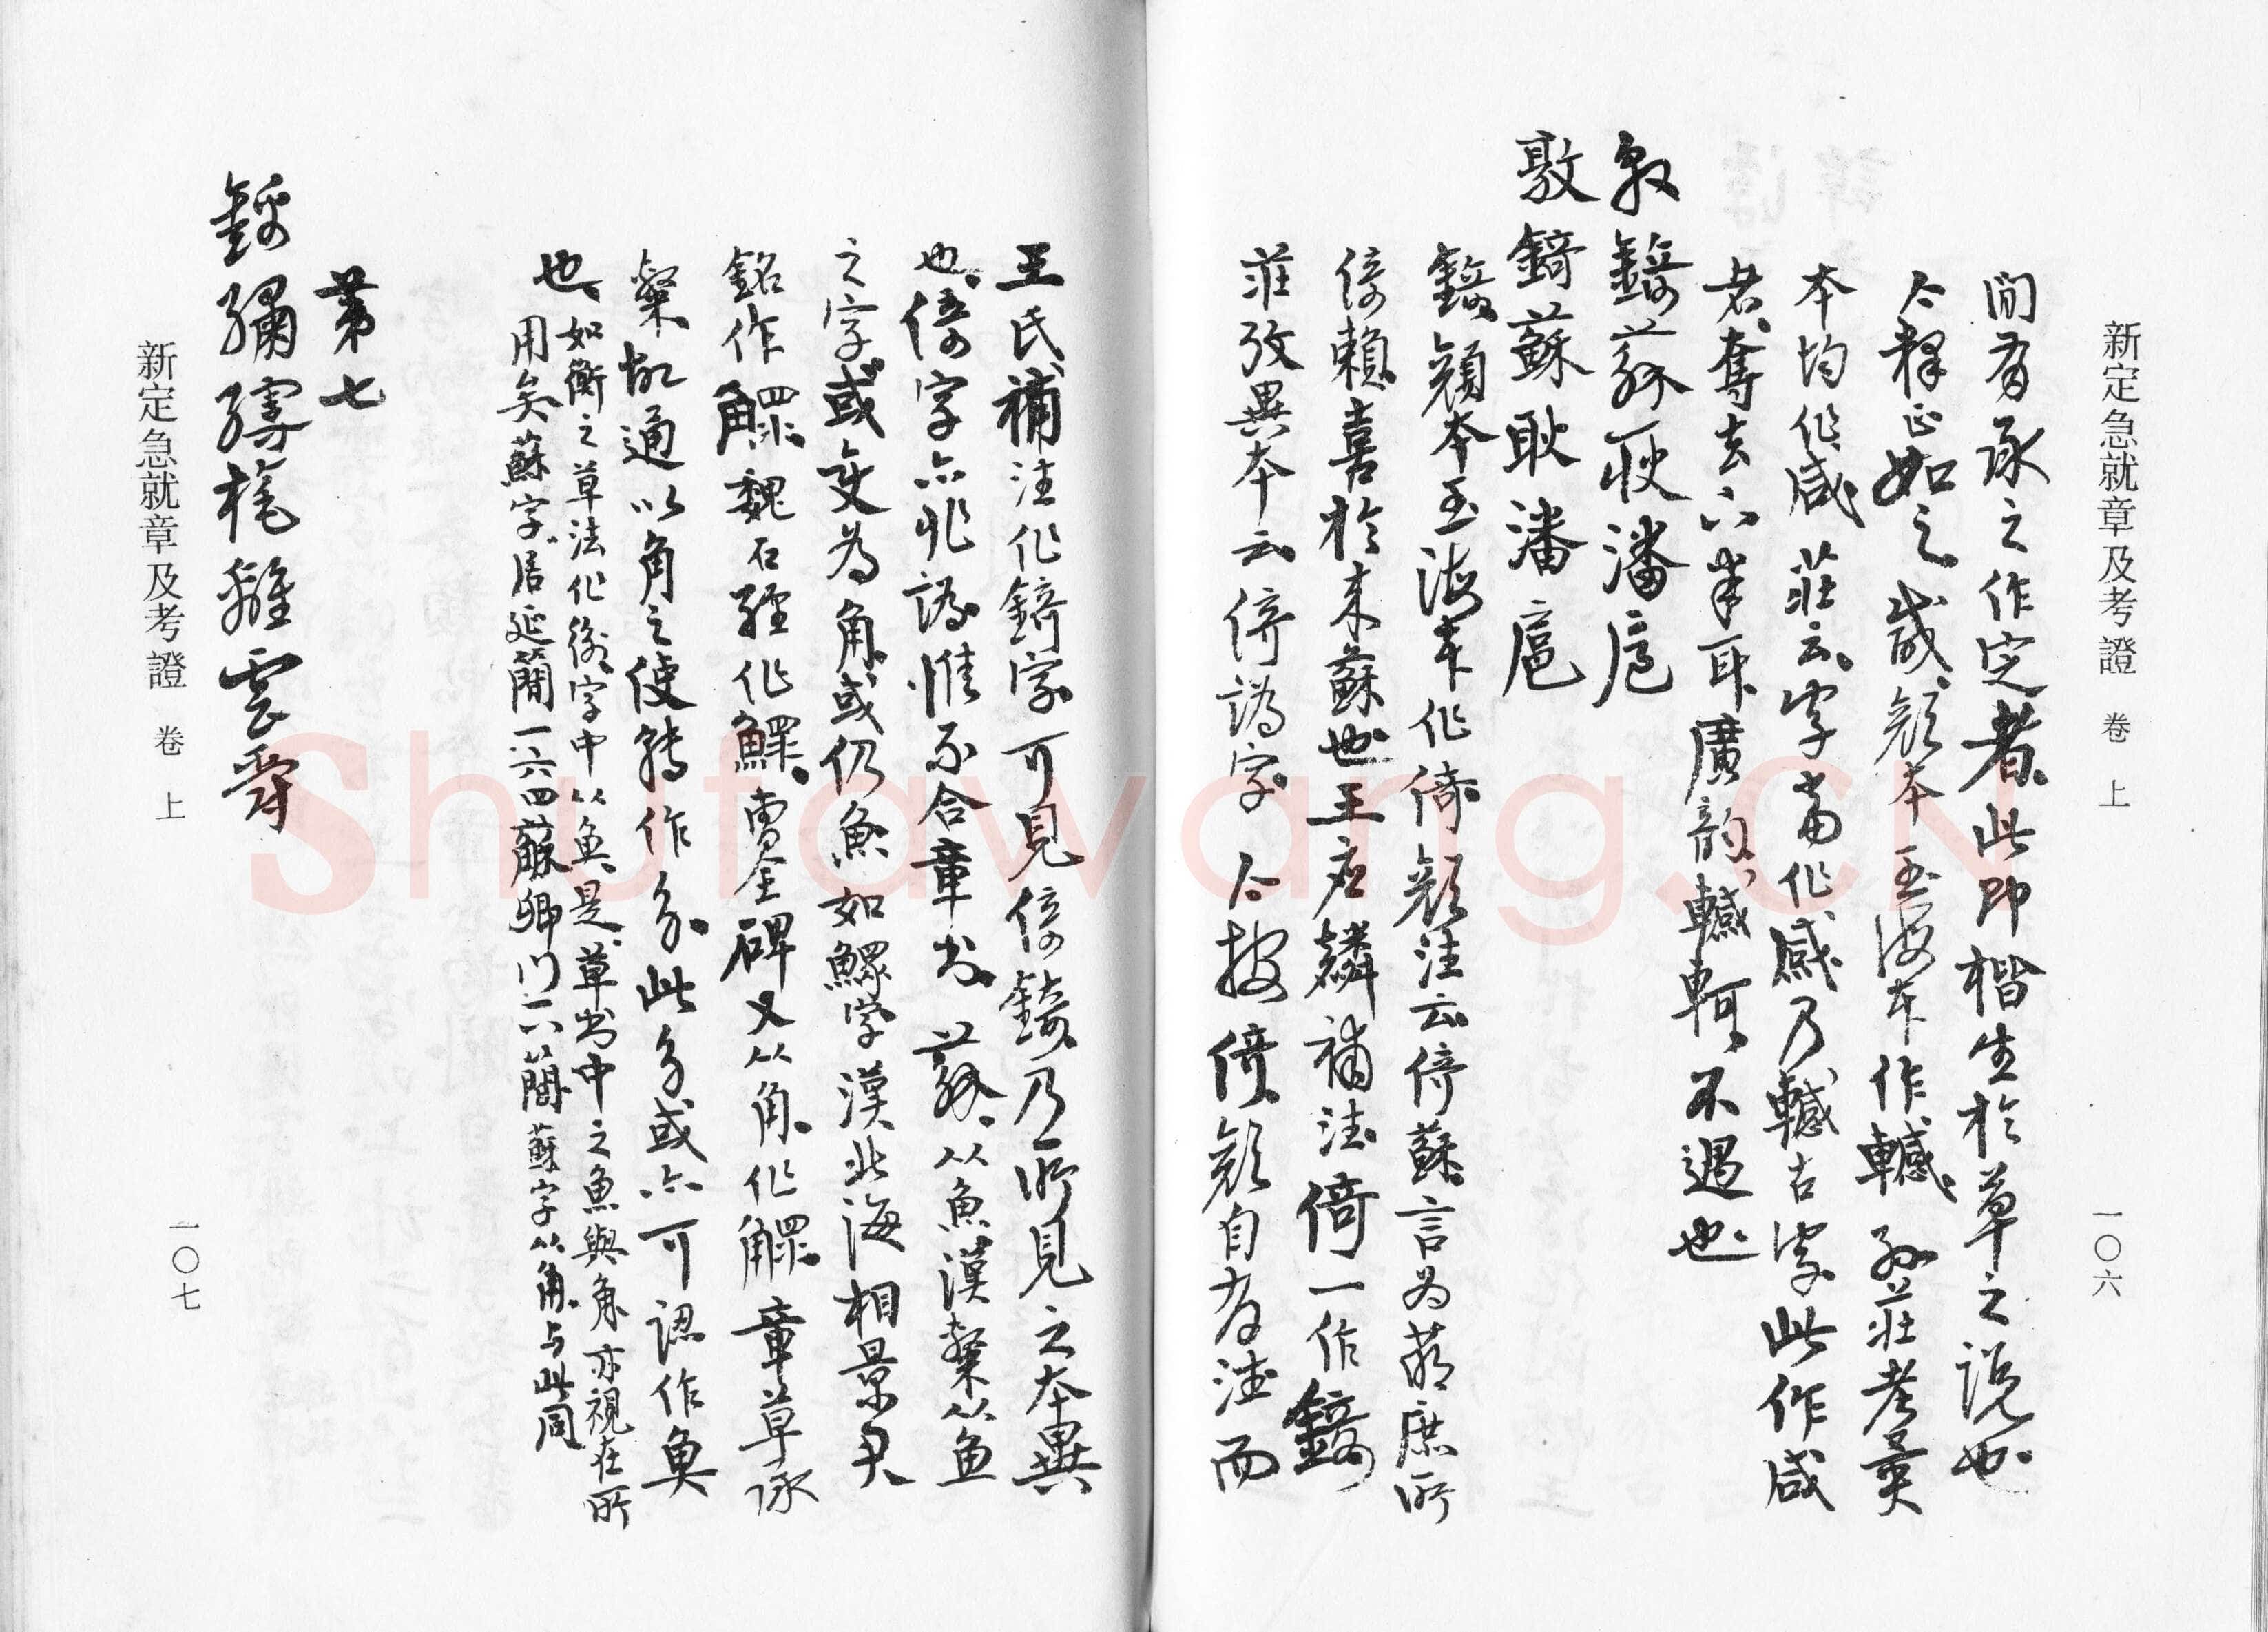 新定急就章及考證 卷上 一〇六
間有承之作定者此即楷生於草之說也
今釋正如之 感顏本玉海本作轗孫莊考異
本均作感 莊云字當作感乃轗古字此作咸
者奪去心耳廣韵轗軻不遇也
敦錡蘇耿潘扈
敦錡蘇耿潘扈
錡顏本玉海本作倚顏注云倚蘇言為萌庶所
倚賴喜於來蘇也王應麟補注倚一作錡
莊攷異本云倚譌字 今按倚顏自有注而
王氏補注作錡字可見倚錡乃所見之本異
也倚字亦非譌惟不合章書 蘇从魚漢槃从魚
之字或變為角或仍魚如鰥字漢北海相景君
銘作觶魏石經作鰥曹全碑又从角作觶章草承
槃故通以角之使轉作 此 或亦可認作魚
也如衡之草法作 字中从魚是草书中之魚與角亦視在所
用矣蘇字居延簡一六四蘇卿門一六簡蘇字从角与此同
第七
錦繡縵𣃁離雲爵
新定急就章及考證 卷上 一〇七